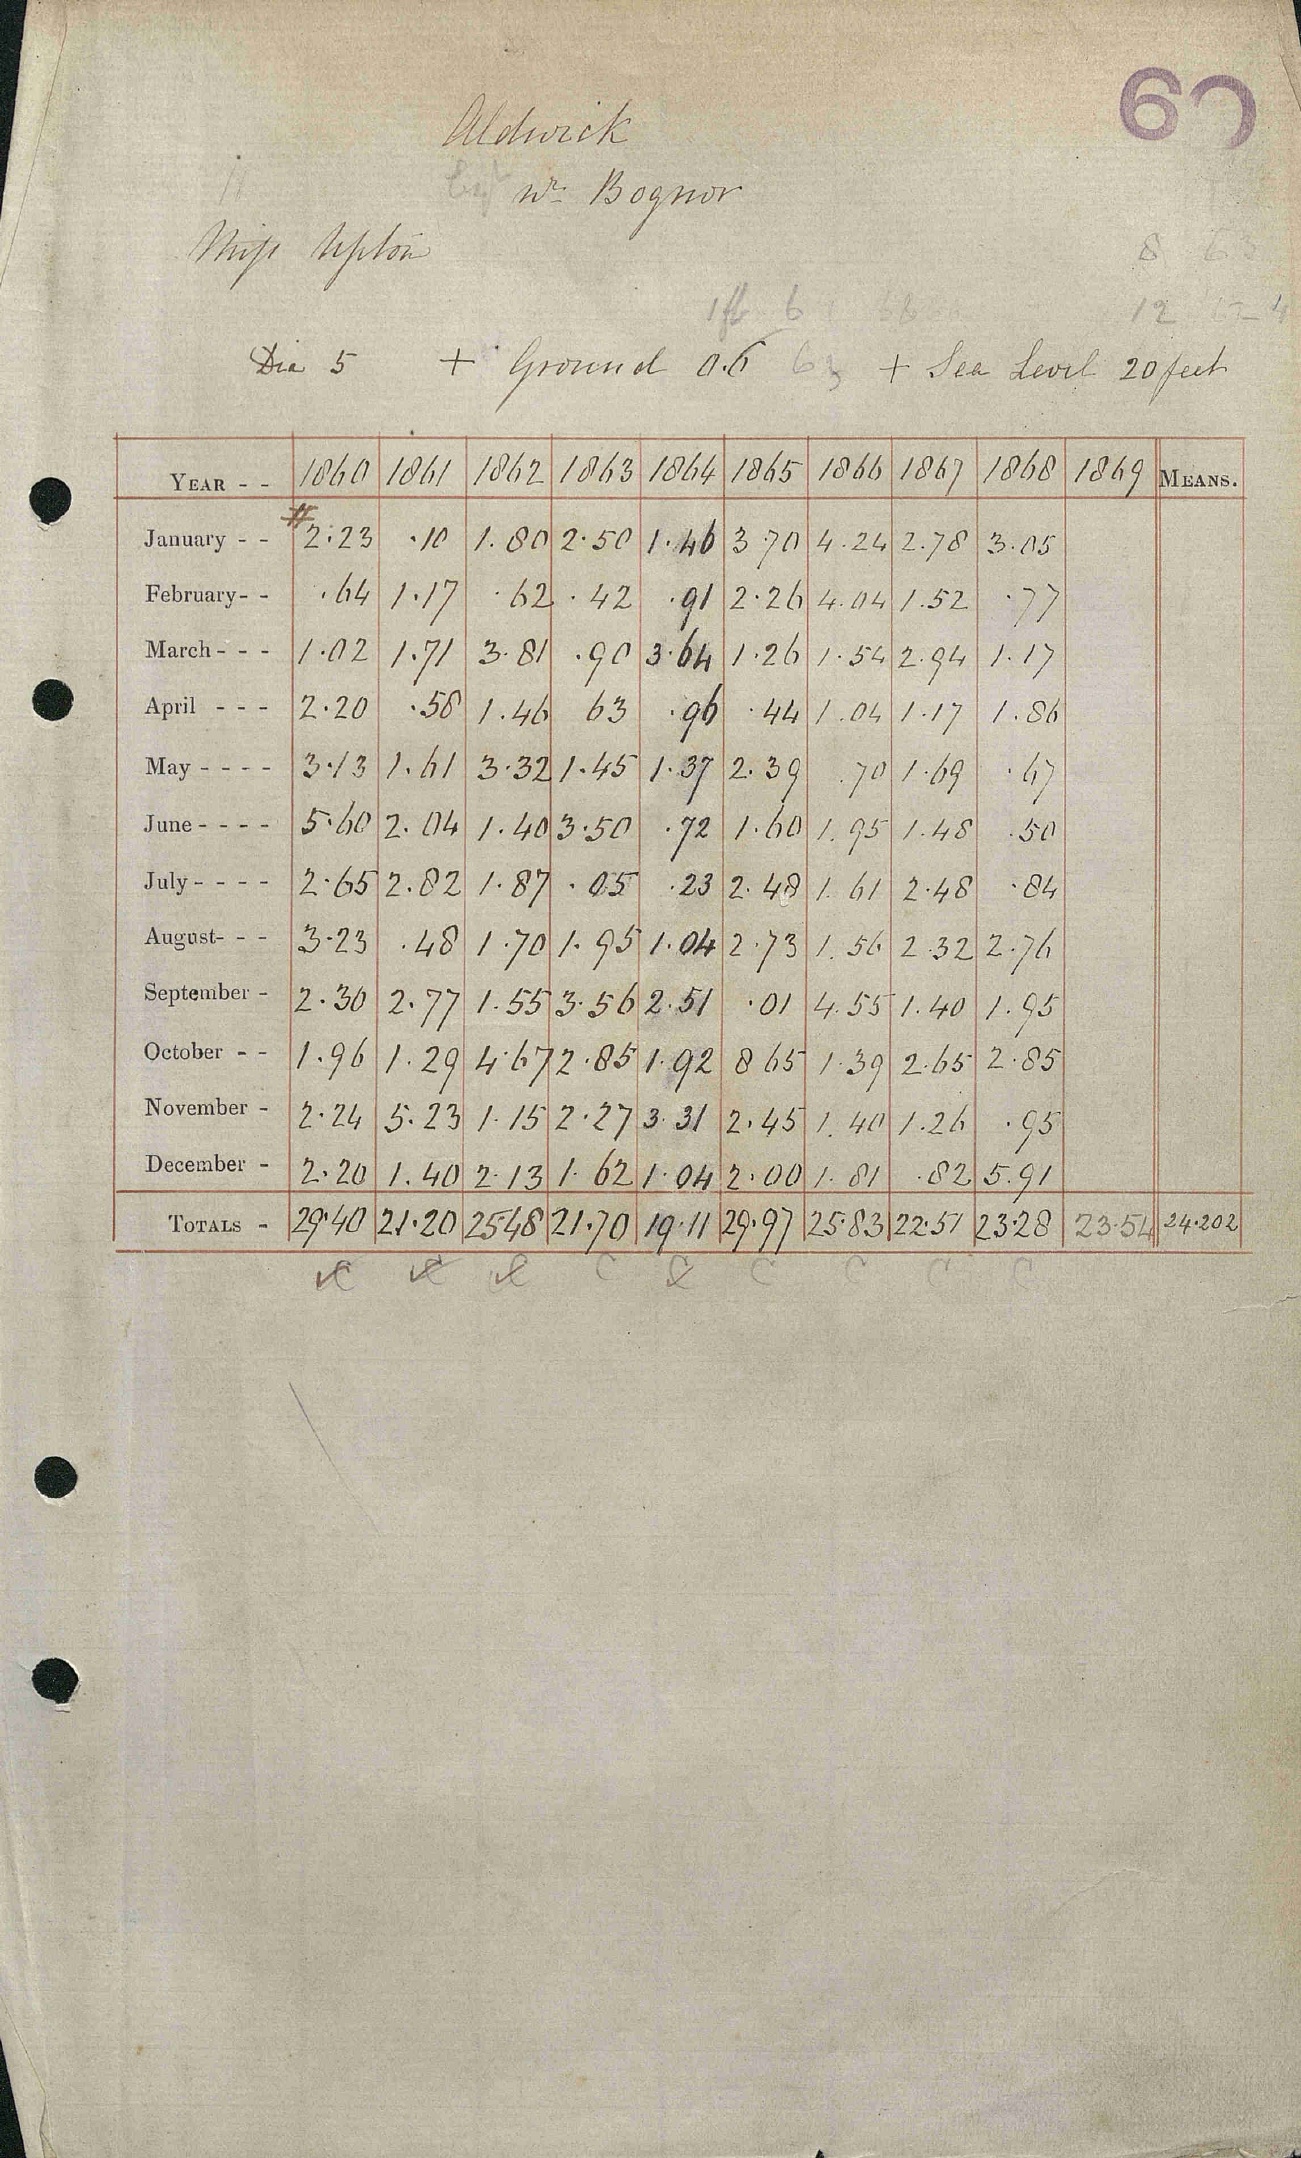 60
Aldwick
nr Bognor
Miss Upton
8 63
1ft 6
12
Dia 5 + Ground 0.6 + Sea Level 20 feet
YEAR - - 1860 1861 1862 1863 1864 1865 1866 1867 1868 1869 MEANS.
January - - 2.23 .10 1.80 2.50 1.46 3.70 4.24 2.78 3.05
February- - .64 1.17 .62 .42 .91 2.26 4.04 1.52 .77
March - - - 1.02 1.71 3.81 .90 3.64 1.26 1.54 2.94 1.17
April - - - 2.20 .58 1.46 63 .96 .44 1.04 1.17 1.86
May - - - - 3.13 1.61 3.32 1.45 1.37 2.39 .70 1.69 .67
June - - - - 5.60 2.04 1.40 3.50 .72 1.60 1.95 1.48 .50
July - - - - 2.65 2.82 1.87 .05 .23 2.48 1.61 2.48 .84
August- - - 3.23 .48 1.70 1.95 1.04 2.73 1.56 2.32 2.76
September - 2.30 2.77 1.55 3.56 2.51 .01 4.55 1.40 1.95
October - - 1.96 1.29 4.67 2.85 1.92 8 65 1.39 2.65 2.85
November - 2.24 5.23 1.15 2.27 3.31 2.45 1.40 1.26 .95
December - 2.20 1.40 2.13 1.62 1.04 2.00 1.81 .82 5.91
TOTALS - 29.40 21.20 25.48 21.70 19.11 29.97 25.83 22.51 23.28 23.54 24.202
C C C C C C C C C